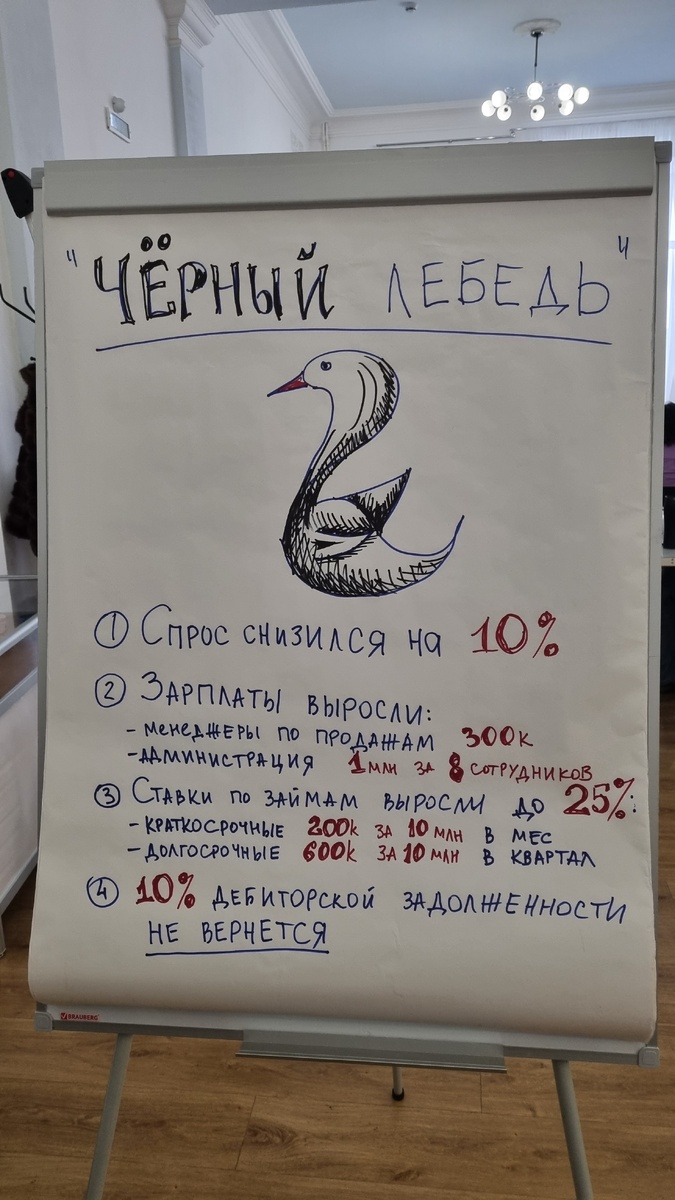 "ЧЁРНЫЙ ЛЕБЕДЬ"
① Спрос снизился на 10%
② Зарплаты выросли:
- менеджеры по продажам 300к
- администрация 1 млн за 8 сотрудников
③ Ставки по займам выросли до 25%:
- краткосрочные 200к за 10 млн в мес
- долгосрочные 600к за 10 млн в квартал
④ 10% дебиторской задолженности
не вернется
BRAUBERG